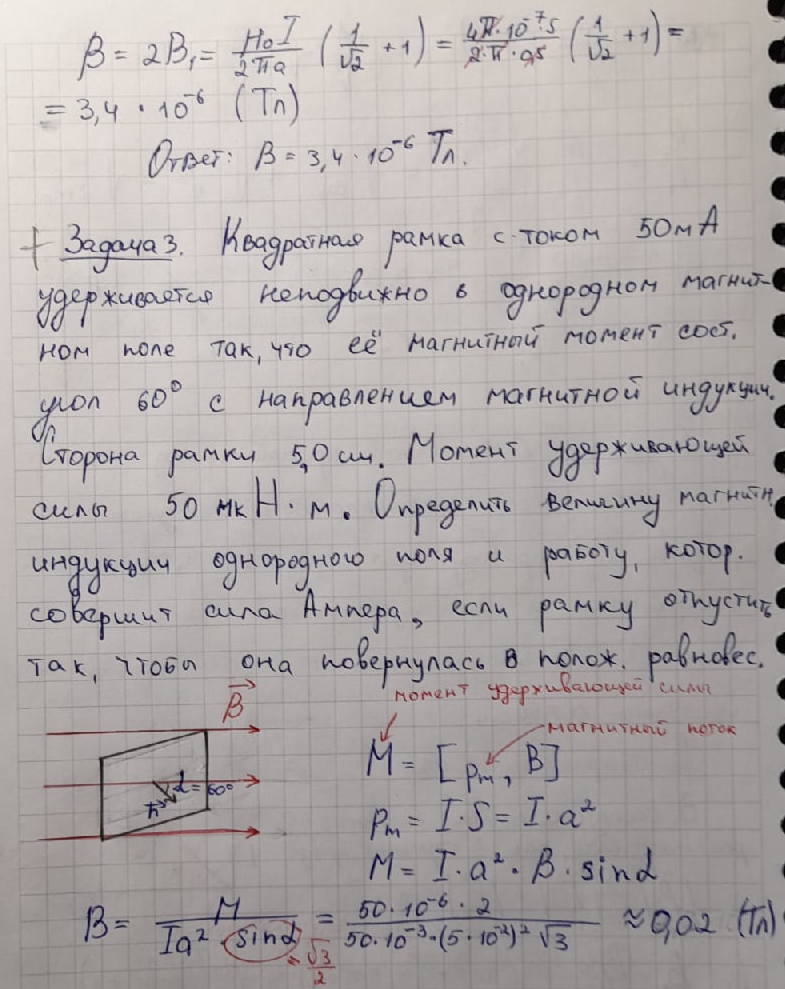 B = 2B₁ = μ₀I / 2πa (1/√2 + 1) = 4π·10⁻⁷·5 / 2·π·0,5 (1/√2 + 1) =
= 3,4 · 10⁻⁶ (Тл)
Ответ: B = 3,4 · 10⁻⁶ Тл.
+ Задача 3. Квадратная рамка с током 50 мА
удерживается неподвижно в однородном магнит-
ном поле так, что её магнитный момент сост.
угол 60° с направлением магнитной индукции.
Сторона рамки 5,0 см. Момент удерживающей
силы 50 мкН·м. Определить величину магнитн.
индукции однородного поля и работу, котор.
совершит сила Ампера, если рамку отпустить
так, чтобы она повернулась в полож. равновес.
момент удерживающей силы
B
магнитный поток
M = [pm, B]
α = 60°
n
pm = I·S = I·a²
M = I·a²·B·sinα
B = M / Ia²·sinα = 50·10⁻⁶·2 / 50·10⁻³·(5·10⁻²)²√3 ≈ 0,02 (Тл)
= √3/2